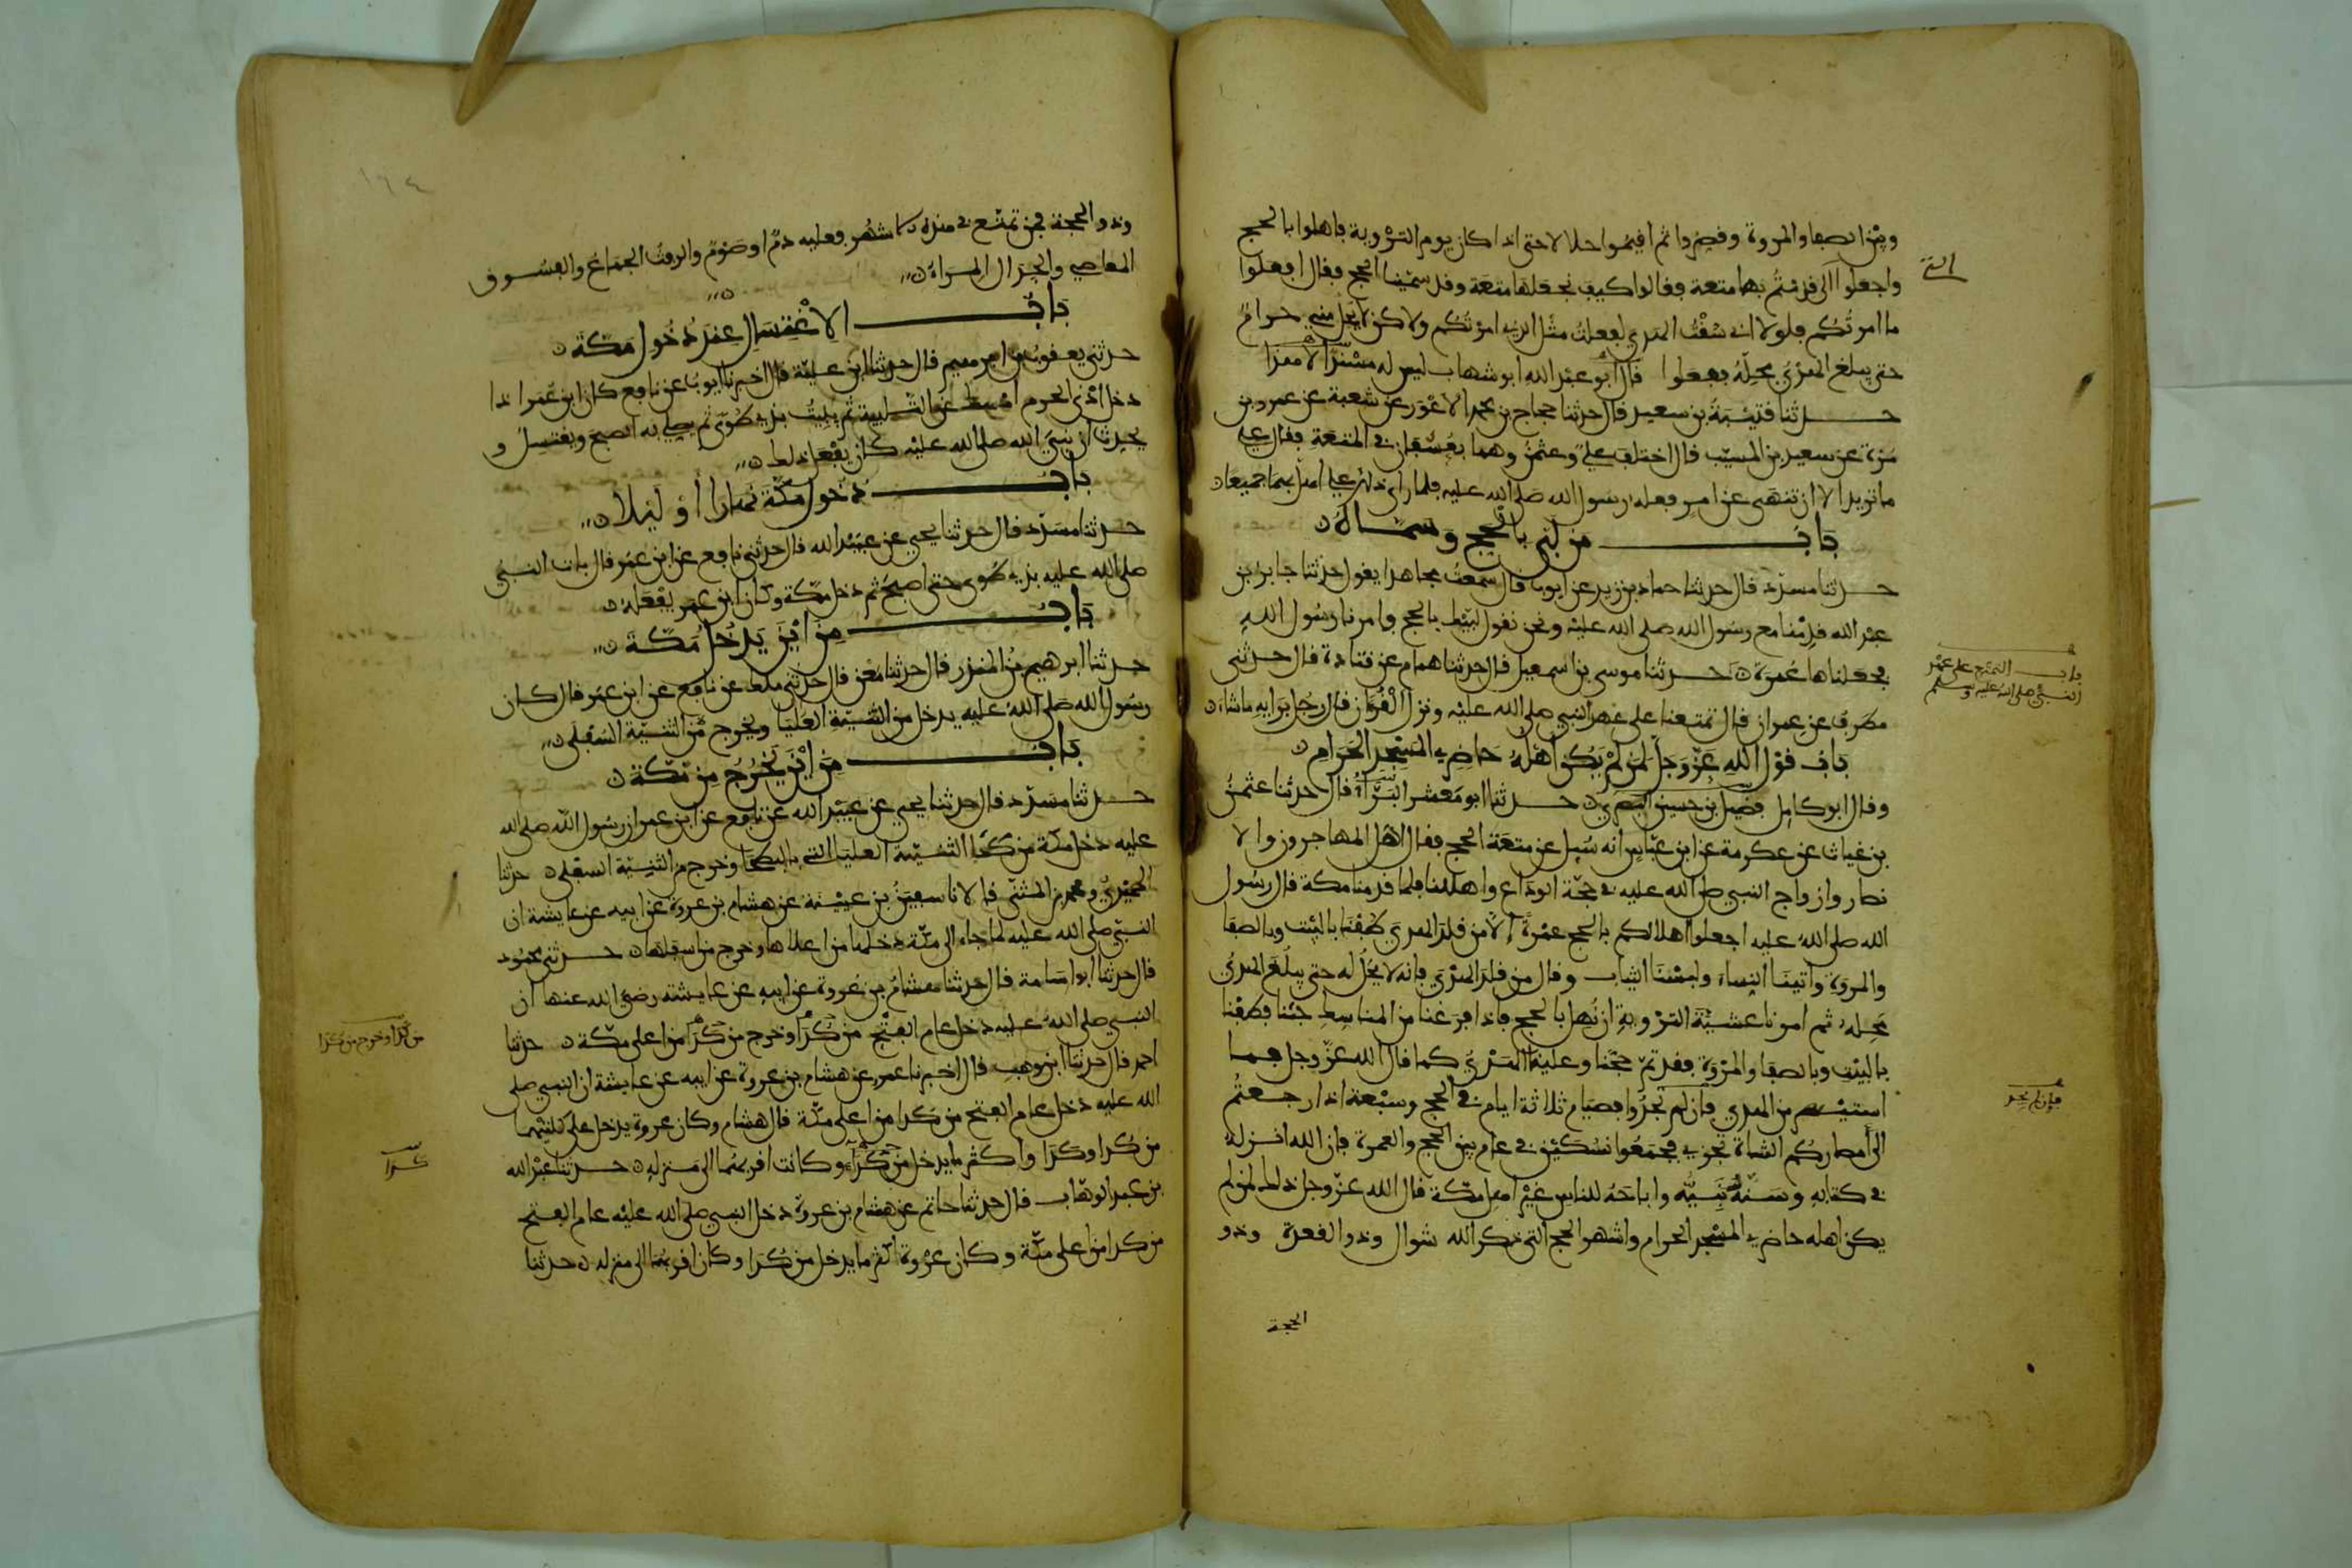 وبين الصفا والمروة وقصروا ثم اقيموا حلالا حتى اذا كان يوم التروية فاهلوا بالحج
واجعلوا الى قدمتم بها متعة فقالوا كيف نجعلها متعة وقد سمينا الحج فقال افعلوا
التي
ما امرتكم فلولا اني سقت الهدي لفعلت مثل الذي امرتكم ولاكن لا يحل مني حرام
حتى يبلغ الهدي محله ففعلوا قال ابو عبد الله ابو شهاب ليس له مسند الا هذا
حدثنا قتيبة بن سعيد قال حدثنا حجاج بن محمد الاعور عن شعبة عن عمرو بن
مرة عن سعيد بن المسيب قال اختلف علي وعثمن وهما بعسفان في المتعة فقال علي
ما تريد الا ان تنهى عن امر فعله رسول الله صلى الله عليه فلما راى ذلك علي اهل بهما جميعا
باب من لبى بالحج وسماه
حدثنا مسدد قال حدثنا حماد بن زيد عن ايوب قال سمعت مجاهدا يقول حدثنا جابر بن
عبد الله قدمنا مع رسول الله صلى الله عليه ونحن نقول لبيك بالحج فامرنا رسول الله
فجعلناها عمرة حدثنا موسى بن اسمعيل قال حدثنا همام عن قتادة قال حدثني
باب التمتع على عهد
النبي صلى الله عليه وسلم
مطرف عن عمران قال تمتعنا على عهد النبي صلى الله عليه ونزل القران قال رجل برايه ما شاء
باب قول الله عز وجل لمن لم يكن اهله حاضري المسجد الحرام
وقال ابو كامل فضيل بن حسين البصري حدثنا ابو معشر البراء قال حدثنا عثمن
بن غياث عن عكرمة عن ابن عباس انه سيل عن متعة الحج فقال اهل المهاجرون والا
نصار وازواج النبي صلى الله عليه في حجة الوداع واهللنا فلما قدمنا مكة قال رسول
الله صلى الله عليه اجعلوا اهلالكم بالحج عمرة الا من قلد الهدي طفنا بالبيت وبالصفا
والمروة واتينا النساء ولبسنا الثياب وقال من قلد الهدي فانه لا يحل له حتى يبلغ الهدي
محله ثم امرنا عشية التروية ان نهل بالحج فاذا فرغنا من المناسك جئنا فطفنا
بالبيت وبالصفا والمروة فقد تم حجنا وعلينا الهدي كما قال الله عز وجل فما
استيسر من الهدي فان لم تجدوا فصيام ثلاثة ايام في الحج وسبعة اذا رجعتم
فان لم يجد
الى امصاركم الشاة تجزي فجمعوا نسكين في عام بين الحج والعمرة فان الله انزله
في كتابه وسنة نبيه واباحه للناس غير اهل مكة قال الله عز وجل ذلك لمن لم
يكن اهله حاضري المسجد الحرام واشهر الحج التي ذكر الله شوال وذو القعدة وذو
الحجة
١٦٤
وذو الحجة فمن تمتع في هذه الاشهر فعليه دم او صوم والرفث الجماع والفسوق
المعاصي والجدال المراء
باب الاغتسال عند دخول مكة
حدثني يعقوب بن ابرهيم قال حدثنا ابن علية قال اخبرنا ايوب عن نافع كان ابن عمر اذا
دخل ادنى الحرم امسك عن التلبية ثم يبيت بذي طوى ثم يصلي به الصبح ويغتسل و
يحدث ان نبي الله صلى الله عليه كان يفعل ذلك
باب دخول مكة نهارا او ليلا
حدثنا مسدد قال حدثنا يحيى عن عبيد الله قال حدثني نافع عن ابن عمر قال بات النبي
صلى الله عليه بذي طوى حتى اصبح ثم دخل مكة وكان ابن عمر يفعله
باب من اين يدخل مكة
حدثنا ابرهيم بن المنذر قال حدثنا معن قال حدثني ملك عن نافع عن ابن عمر قال كان
رسول الله صلى الله عليه يدخل من الثنية العليا ويخرج من الثنية السفلى
باب من اين يخرج من مكة
حدثنا مسدد قال حدثنا يحيى عن عبيد الله عن نافع عن ابن عمر ان رسول الله صلى الله
عليه دخل مكة من كدا الثنية العليا التي بالبطحا وخرج من الثنية السفلى حدثنا
الحميدي ومحمد بن المثنى قالا نا سفين بن عيينة عن هشام بن عروة عن ابيه عن عايشة ان
النبي صلى الله عليه لما جاء الى مكة دخلها من اعلاها وخرج من اسفلها حدثني محمود
قال حدثنا ابو اسامة قال حدثنا هشام بن عروة عن ابيه عن عايشة رضي الله عنها ان
النبي صلى الله عليه دخل عام الفتح من كدا وخرج من كدا من اعلى مكة حدثنا
من كدا وخرج من كدا
احمد قال حدثنا ابن وهب قال اخبرنا عمرو عن هشام بن عروة عن ابيه عن عايشة ان النبي صلى
الله عليه دخل عام الفتح من كدا من اعلى مكة قال هشام وكان عروة يدخل على كلتيهما
من كدا وكدا واكثر ما يدخل من كدا وكانت اقربهما الى منزله حدثنا عبد الله
كدا
بن عبد الوهاب قال حدثنا حاتم عن هشام بن عروة دخل النبي صلى الله عليه عام الفتح
من كدا من اعلى مكة وكان عروة اكثر ما يدخل من كدا وكان اقربهما الى منزله حدثنا